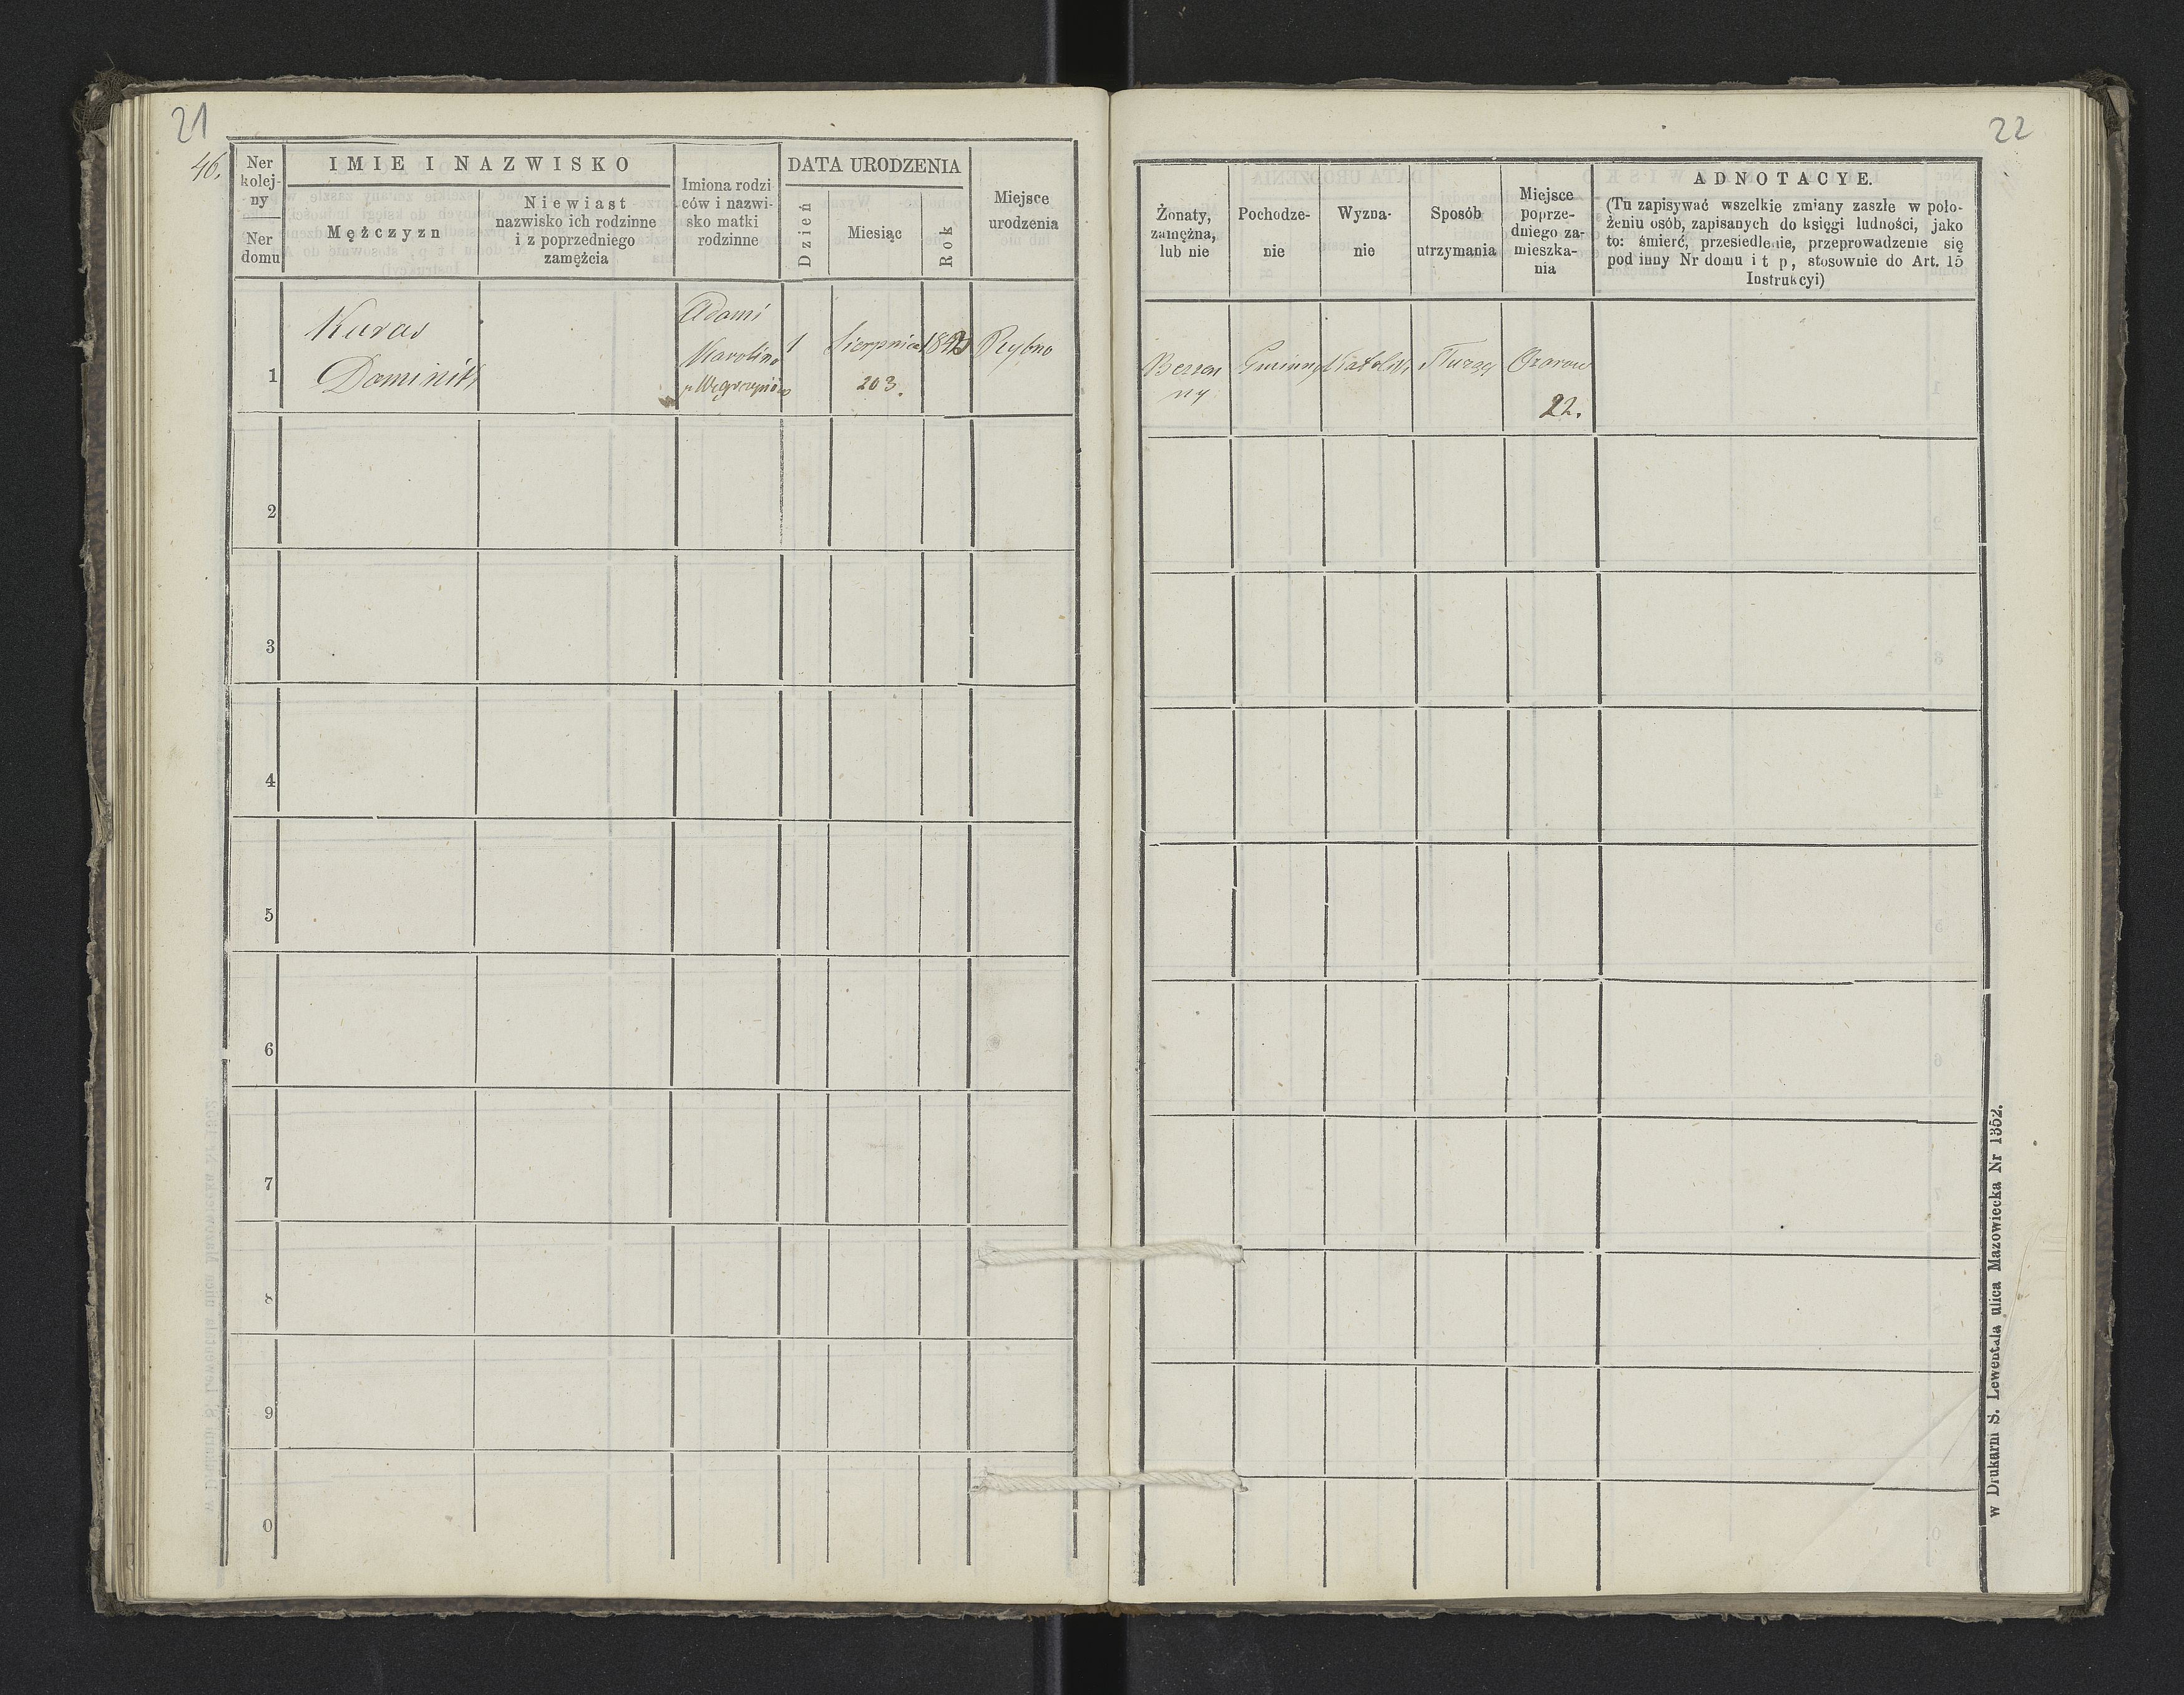 21
46.
Ner kolej- ny
Ner domu
IMIE I NAZWISKO
Mężczyzn
Niewiast
nazwisko ich rodzinne
i z poprzedniego
zamęźcia
Imiona rodzi
ców i nazwi-
sko matki
rodzinne
DATA URODZENIA
Dzień
Miesiąc
Rok
Miejsce
urodzenia
1
Kuras
Dominik
Adam i
Karolina
z Węgrzynów
1
Sierpnia
203.
Rybno
2
3
4
5
6
7
8
9
0
22
Żonaty,
zamężna,
lub nie
Pochodze-
nie
Wyzna-
nie
Sposób
utrzymania
Miejsce
poprze-
dniego za-
mieszka-
nia
ADNOTACYE.
(Tu zapisywać wszelkie zmiany zaszłe w poło-
żeniu osób, zapisanych do księgi ludności, jako
to: śmierć, przesiedlenie, przeprowadzenie się
pod inny Nr domu i t p, stosownie do Art. 15
Instrukcyi)
Bezżen
ny
Gminny Katolik Sługa Ozarow
22.
w Drukarni S. Lewentala ulica Mazowiecka Nr 1352.